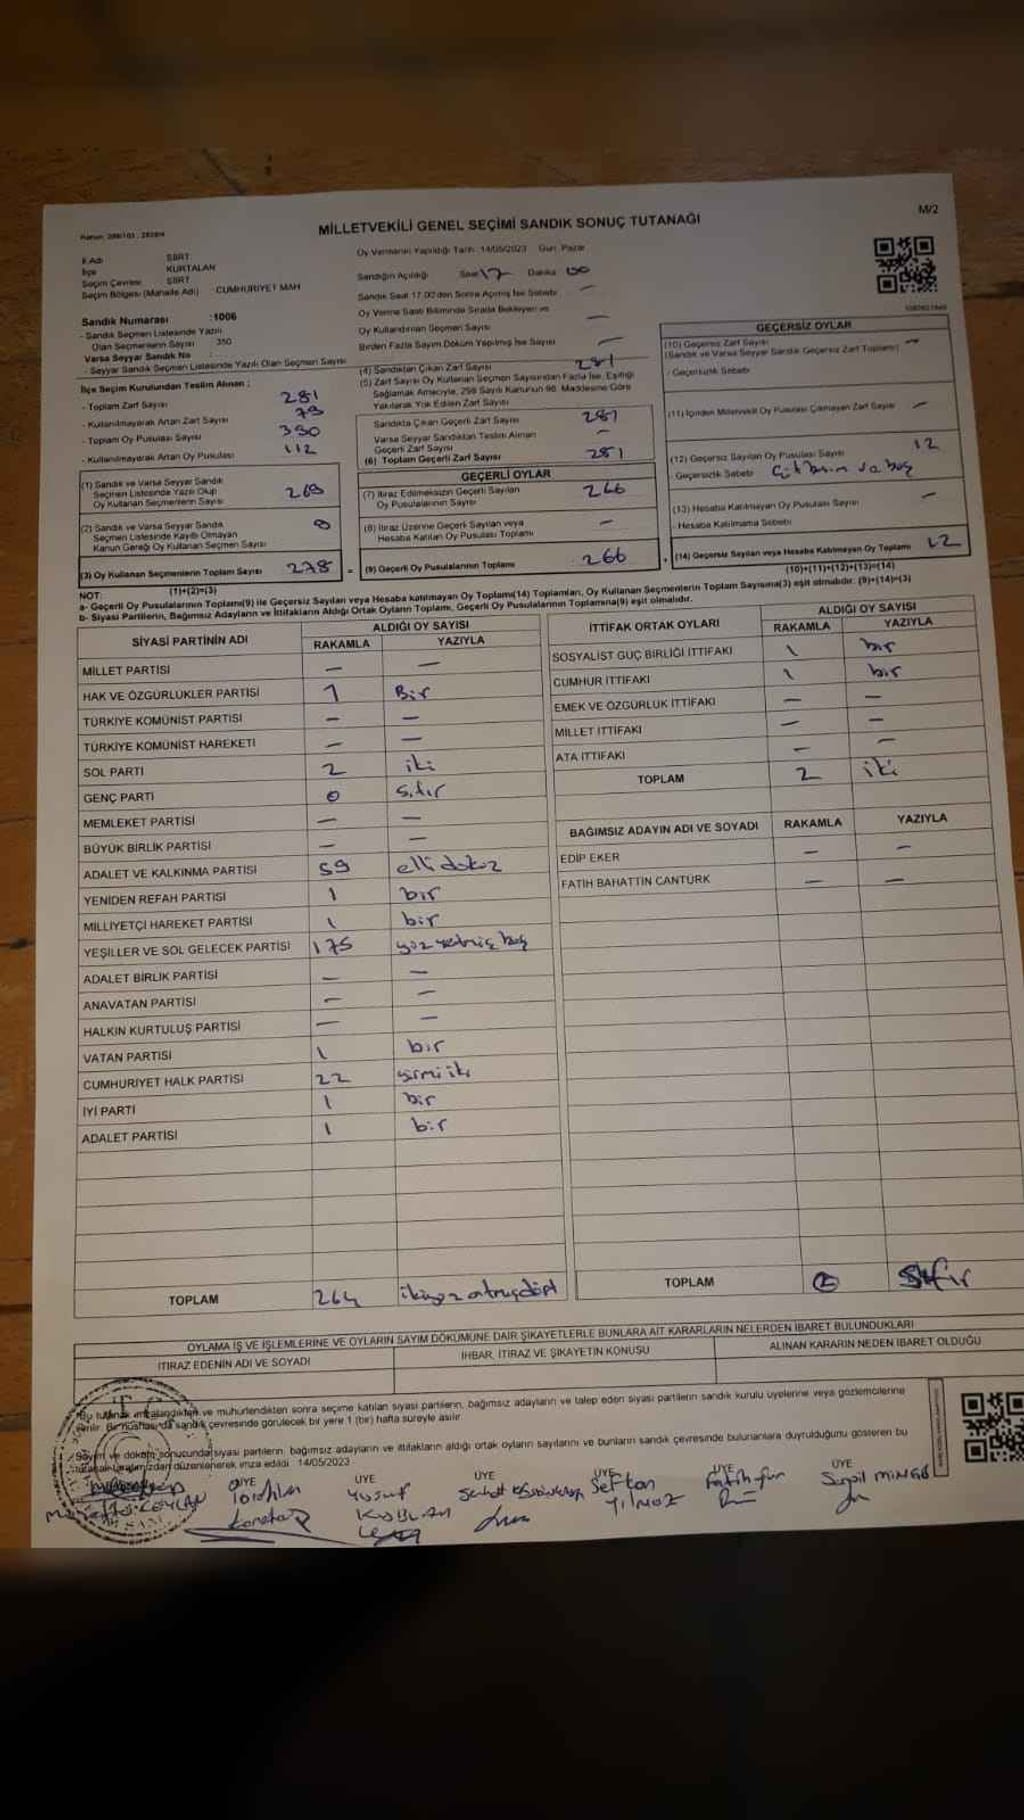 MİLLETVEKİLİ GENEL SEÇİMİ SANDIK SONUÇ TUTANAĞI
M/2
İl Adı SİİRT
İlçe KURTALAN
Seçim Çevresi SİİRT
Seçim Bölgesi (Mahalle Adı) : CUMHURİYET MAH
Sandık Numarası :1006
- Sandık Seçmen Listesinde Yazılı
Olan Seçmenlerin Sayısı 350
Varsa Seyyar Sandık No
- Seyyar Sandık Seçmen Listesinde Yazılı Olan Seçmen Sayısı
İlçe Seçim Kurulundan Teslim Alınan :
- Toplam Zarf Sayısı 281
- Kullanılmayarak Artan Zarf Sayısı 79
- Toplam Oy Pusulası Sayısı 390
- Kullanılmayarak Artan Oy Pusulası 112
(1) Sandık ve Varsa Seyyar Sandık
Seçmen Listesinde Yazılı Olup
Oy Kullanan Seçmenlerin Sayısı 269
(2) Sandık ve Varsa Seyyar Sandık
Seçmen Listesinde Kayıtlı Olmayan
Kanun Gereği Oy Kullanan Seçmen Sayısı
(3) Oy Kullanan Seçmenlerin Toplam Sayısı 278
(1)+(2)=(3)
Oy Vermenin Yapıldığı Tarih : 14/05/2023 Gün: Pazar
Sandığın Açıldığı Saat 17 Dakika 00
Sandık Saat 17.00'den Sonra Açılmış İse Sebebi —
Oy Verme Saati Bitiminde Sırada Bekleyen ve
Oy Kullandırılan Seçmen Sayısı —
Birden Fazla Sayım Döküm Yapılmış İse Sayısı —
(4) Sandıktan Çıkan Zarf Sayısı 281
(5) Zarf Sayısı Oy Kullanan Seçmen Sayısından Fazla İse, Eşitliği
Sağlamak Amacıyla, 298 Sayılı Kanunun 98. Maddesine Göre
Yakılarak Yok Edilen Zarf Sayısı
Sandıkta Çıkan Geçerli Zarf Sayısı 281
Varsa Seyyar Sandıktan Teslim Alınan
Geçerli Zarf Sayısı —
(6) Toplam Geçerli Zarf Sayısı 281
GEÇERLİ OYLAR
(7) İtiraz Edilmeksizin Geçerli Sayılan
Oy Pusulalarının Sayısı 266
(8) İtiraz Üzerine Geçerli Sayılan veya
Hesaba Katılan Oy Pusulası Toplamı —
(9) Geçerli Oy Pusulalarının Toplamı 266
GEÇERSİZ OYLAR
(10) Geçersiz Zarf Sayısı —
(Sandık ve Varsa Seyyar Sandık Geçersiz Zarf Toplamı)
- Geçersizlik Sebebi
(11) İçinden Milletvekili Oy Pusulası Çıkmayan Zarf Sayısı —
(12) Geçersiz Sayılan Oy Pusulası Sayısı 12
Geçersizlik Sebebi
(13) Hesaba Katılmayan Oy Pusulası Sayısı —
- Hesaba Katılmama Sebebi
(14) Geçersiz Sayılan veya Hesaba Katılmayan Oy Toplamı 12
(10)+(11)+(12)+(13)=(14)
NOT:
a- Geçerli Oy Pusulalarının Toplamı(9) ile Geçersiz Sayılan veya Hesaba Katılmayan Oy Toplamı(14) Toplamları, Oy Kullanan Seçmenlerin Toplam Sayısına(3) eşit olmalıdır. (9)+(14)=(3)
b- Siyasi Partilerin, Bağımsız Adayların ve İttifakların Aldığı Ortak Oyların Toplamı, Geçerli Oy Pusulalarının Toplamına(9) eşit olmalıdır.
SİYASİ PARTİNİN ADI ALDIĞI OY SAYISI
RAKAMLA YAZIYLA
MİLLET PARTİSİ — —
HAK VE ÖZGÜRLÜKLER PARTİSİ 1 Bir
TÜRKİYE KOMÜNİST PARTİSİ — —
TÜRKİYE KOMÜNİST HAREKETİ — —
SOL PARTİ 2 iki
GENÇ PARTİ 0 sıfır
MEMLEKET PARTİSİ — —
BÜYÜK BİRLİK PARTİSİ — —
ADALET VE KALKINMA PARTİSİ 59 elli dokuz
YENİDEN REFAH PARTİSİ 1 bir
MİLLİYETÇİ HAREKET PARTİSİ 1 bir
YEŞİLLER VE SOL GELECEK PARTİSİ 175 yüz yetmiş beş
ADALET BİRLİK PARTİSİ — —
ANAVATAN PARTİSİ — —
HALKIN KURTULUŞ PARTİSİ — —
VATAN PARTİSİ 1 bir
CUMHURİYET HALK PARTİSİ 22 yirmi iki
İYİ PARTİ 1 bir
ADALET PARTİSİ 1 bir
TOPLAM 264 ikiyüz atmışdört
İTTİFAK ORTAK OYLARI ALDIĞI OY SAYISI
RAKAMLA YAZIYLA
SOSYALİST GÜÇ BİRLİĞİ İTTİFAKI 1 bir
CUMHUR İTTİFAKI 1 bir
EMEK VE ÖZGÜRLÜK İTTİFAKI — —
MİLLET İTTİFAKI — —
ATA İTTİFAKI — —
TOPLAM 2 iki
BAĞIMSIZ ADAYIN ADI VE SOYADI RAKAMLA YAZIYLA
EDİP EKER — —
FATİH BAHATTİN CANTÜRK — —
TOPLAM sıfır
OYLAMA İŞ VE İŞLEMLERİNE VE OYLARIN SAYIM DÖKÜMÜNE DAİR ŞİKAYETLERLE BUNLARA AİT KARARLARIN NELERDEN İBARET BULUNDUKLARI
İTİRAZ EDENİN ADI VE SOYADI İHBAR, İTİRAZ VE ŞİKAYETİN KONUSU ALINAN KARARIN NEDEN İBARET OLDUĞU
Bu tutanak imzalandıktan ve mühürlendikten sonra seçime katılan siyasi partilerin, bağımsız adayların ve talep eden siyasi partilerin sandık kurulu üyelerine veya gözlemcilerine
verilir. Bir nüshası da sandık çevresinde görülecek bir yere 1 (bir) hafta süreyle asılır.
Sayım ve döküm sonucunda siyasi partilerin, bağımsız adayların ve ittifakların aldığı ortak oyların sayılarını ve bunların sandık çevresinde bulunanlara duyrulduğunu gösteren bu
tutanak tarafımızdan düzenlenerek imza edildi. 14/05/2023
ÜYE ÜYE ÜYE ÜYE ÜYE ÜYE
Yusuf Fatih
YILMAZ